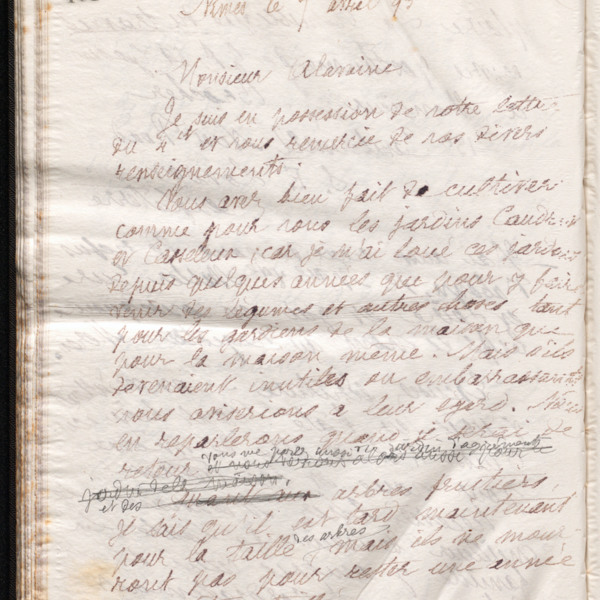 Nimes le 7 avril 93
Monsieur Alavoine
Je suis en possession de votre lettre
du 4 ct et vous remercie de vos divers
renseignements.
Vous avez bien fait de cultiver
comme pour vous les jardins
et Casseleux, car je n'ai loué ces jardins
depuis quelques années que pour y faire
venir des légumes et autres choses tant
pour les gardiens de la maison que
pour la maison même. Mais s'ils
devenaient inutiles ou embarrassants
nous aviserions à leur égard. Nous
en reparlerons quand je serai de
retour
et des arbres fruitiers,
Je sais qu'il est tard maintenant
pour la taille des arbres, mais ils ne mour-
ront pas pour rester une année